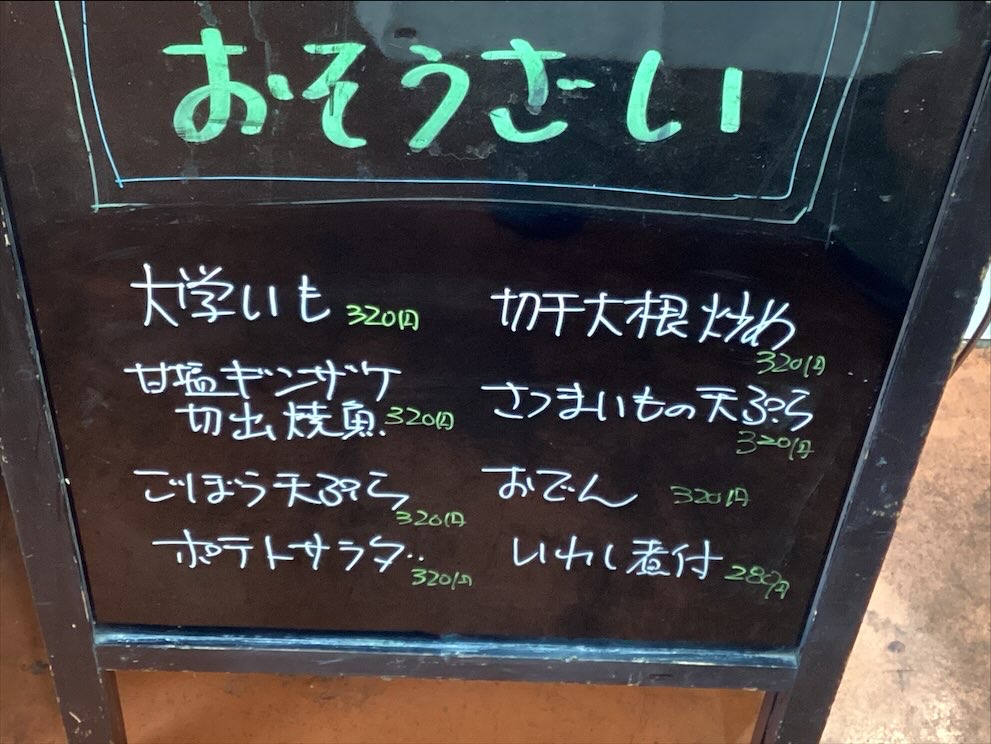 おそうざい
大学いも 320円
甘塩ギンザケ
切出焼魚 320円
ごぼう天ぷら
320円
ポテトサラダ
320円
切干大根炒め
320円
さつまいもの天ぷら
320円
おでん 320円
いわし煮付 280円